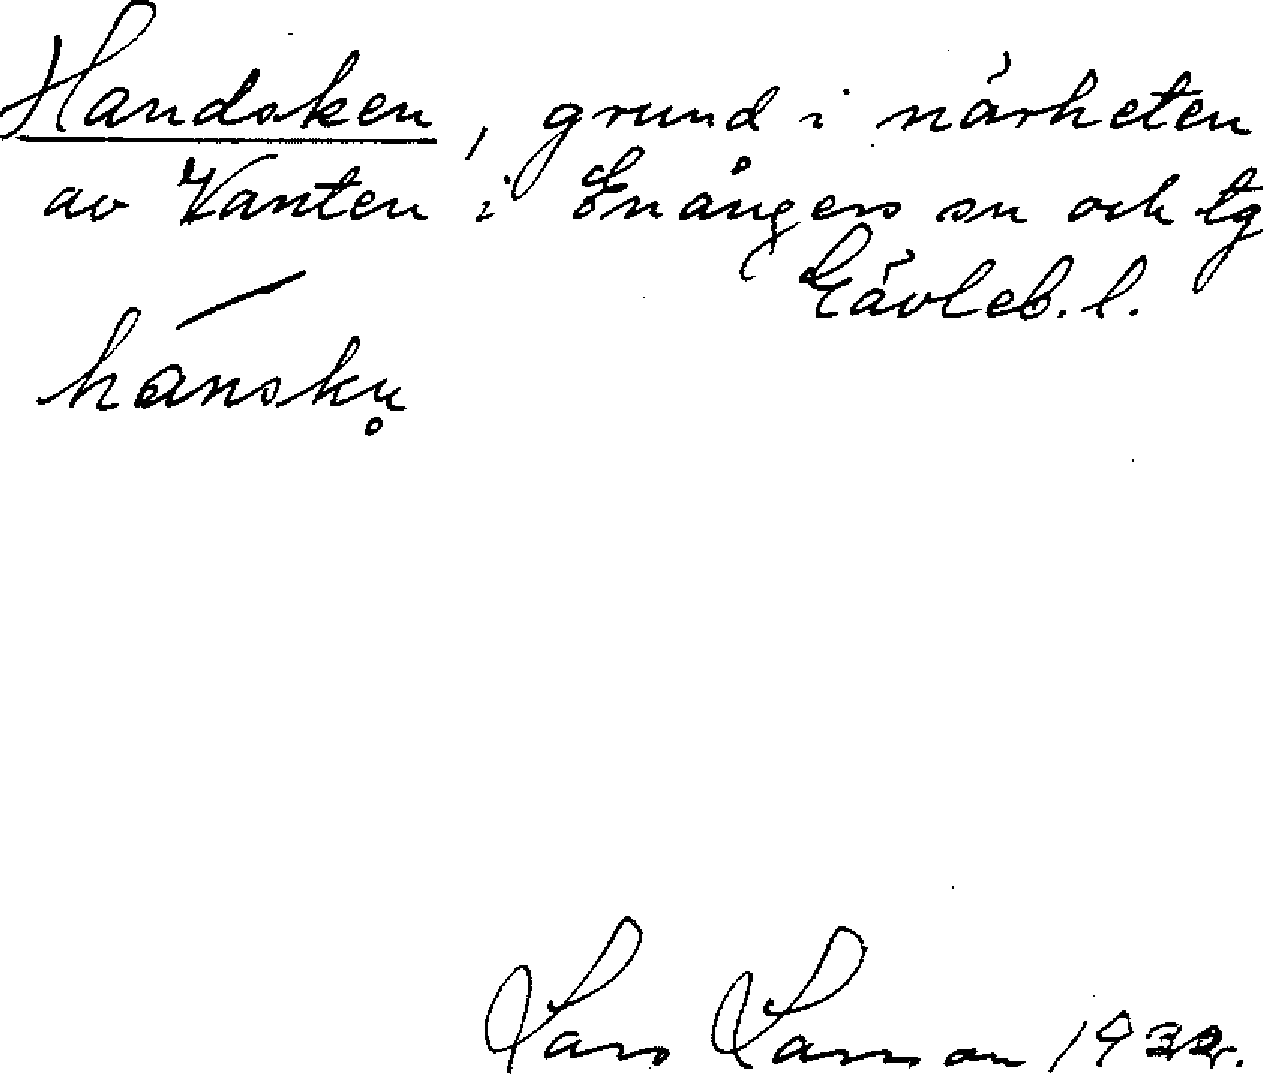 Handsken, grund i närheten
av Vanten i Enångers sn och tg
Gävleb. l.
hánskn̥
Lars Larsson 1932.